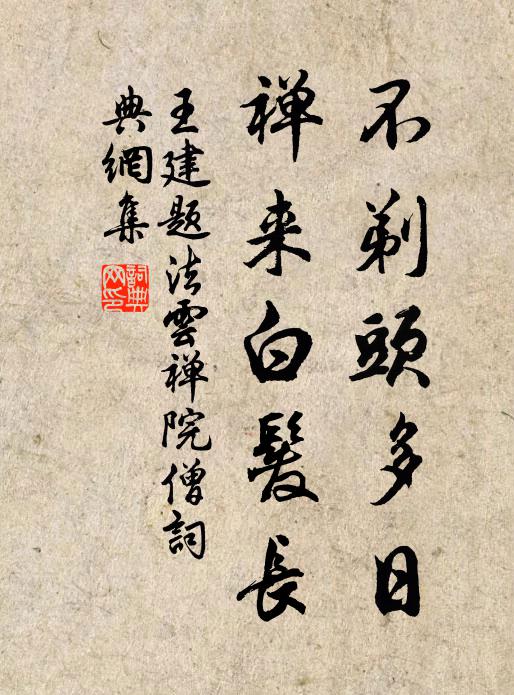 不剃頭多日
禅来白髮長
王建题法雲禅院僧詞
典網集
詞典
网印